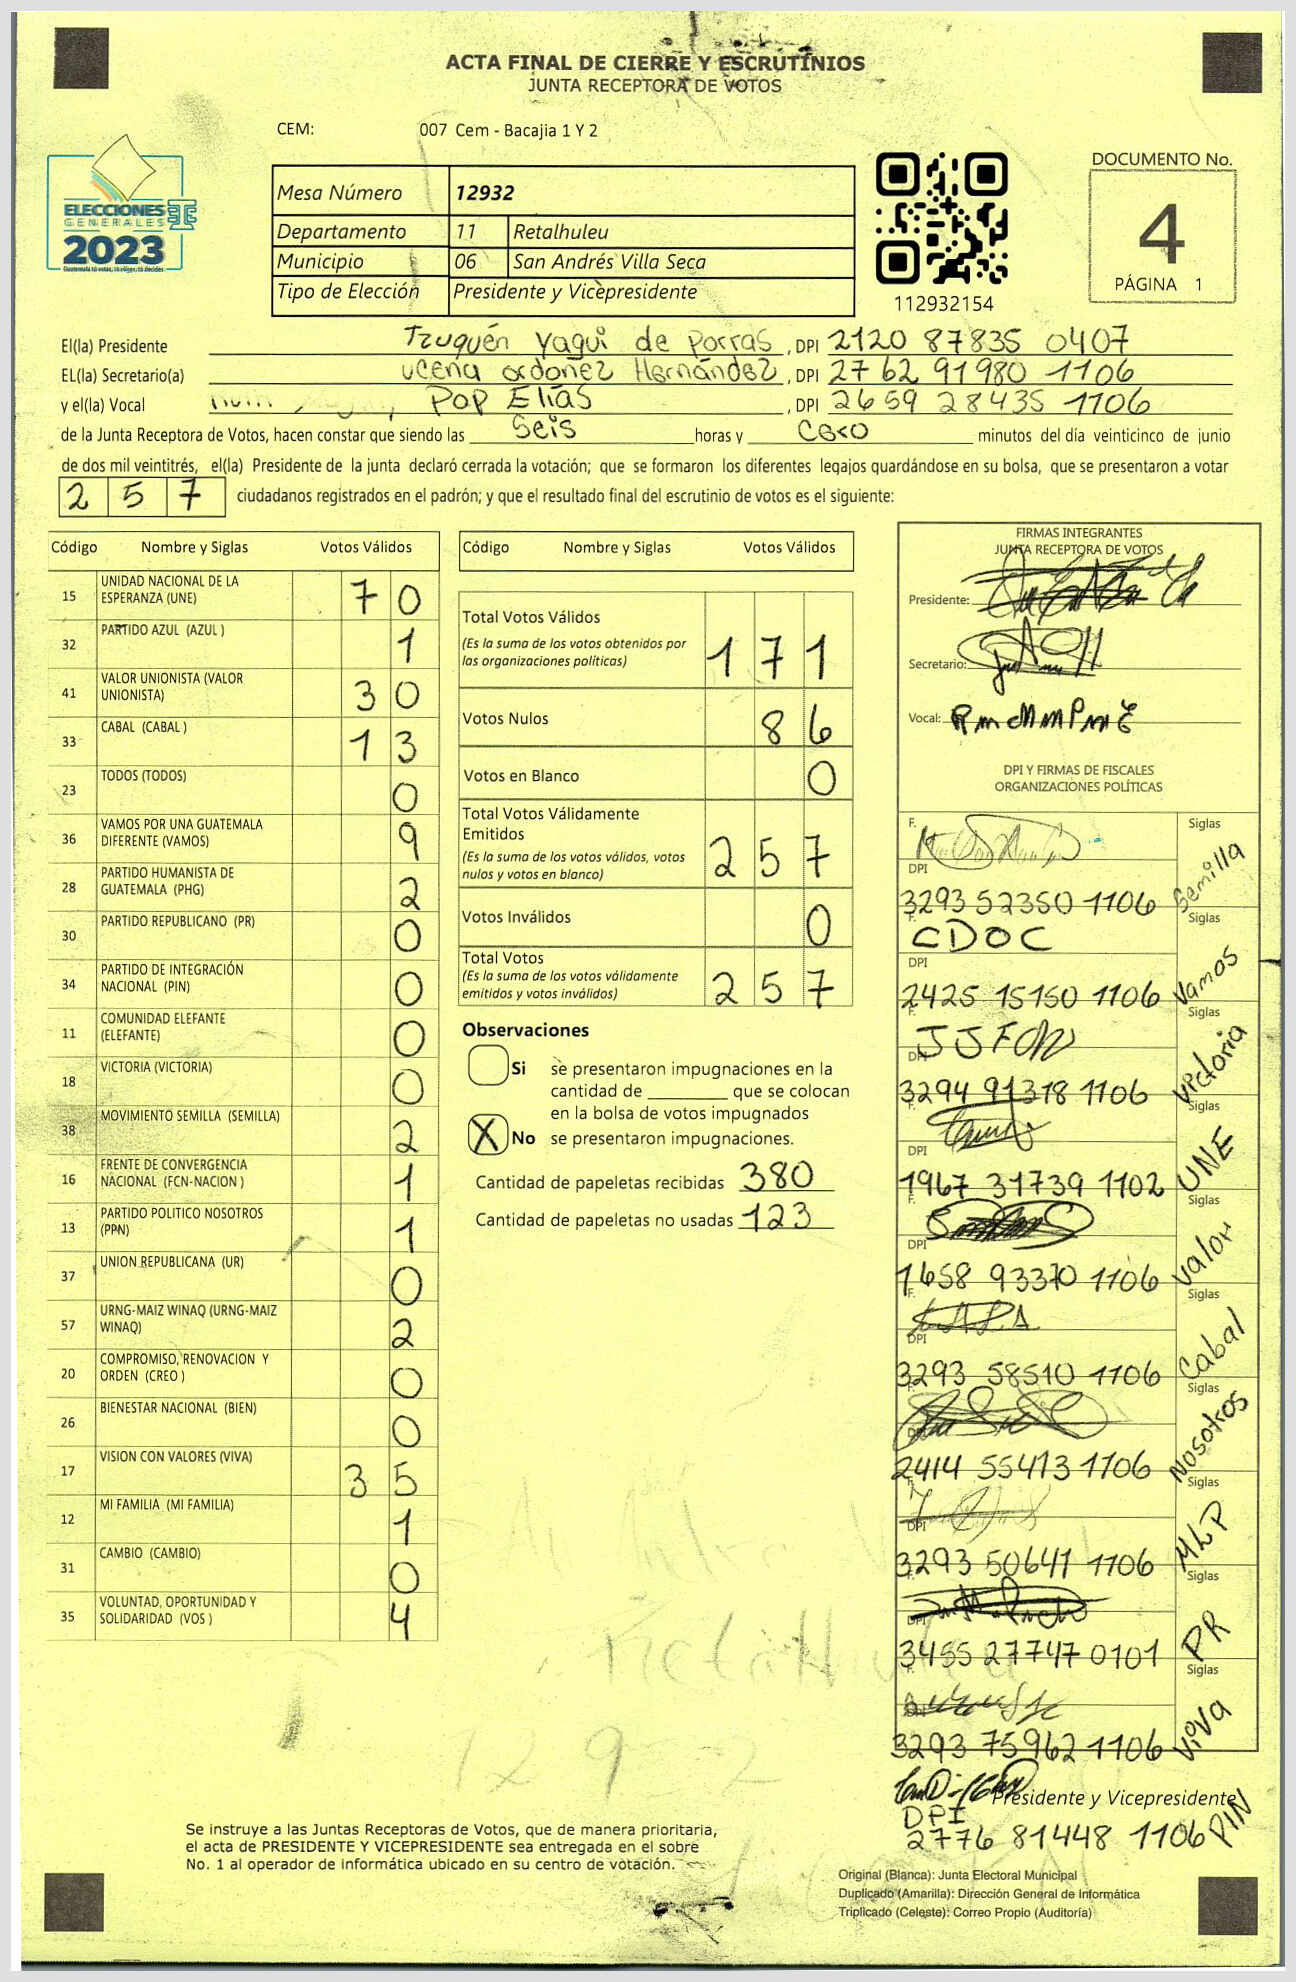 ACTA FINAL DE CIERRE Y ESCRUTINIOS
JUNTA RECEPTORA DE VOTOS
CEM: 007 Cem - Bacajia 1 Y 2
ELECCIONES
GENERALES
2023
Mesa Número 12932
Departamento 11 Retalhuleu
Municipio 06 San Andrés Villa Seca
Tipo de Elección Presidente y Vicepresidente
112932154
DOCUMENTO No.
4
PÁGINA 1
El(la) Presidente Tzuquén Yaqui de Porras, DPI 2120 87835 0407
EL(la) Secretario(a) ucena ordoñez Hernández, DPI 2762 91980 1106
y el(la) Vocal Pop Elías, DPI 2659 28435 1106
de la Junta Receptora de Votos, hacen constar que siendo las Seis horas y Cero minutos del día veinticinco de junio
de dos mil veintitrés, el(la) Presidente de la junta declaró cerrada la votación; que se formaron los diferentes legajos guardándose en su bolsa, que se presentaron a votar
2 5 7 ciudadanos registrados en el padrón; y que el resultado final del escrutinio de votos es el siguiente:
Código Nombre y Siglas Votos Válidos
15 UNIDAD NACIONAL DE LA ESPERANZA (UNE) 7 0
32 PARTIDO AZUL (AZUL ) 1
41 VALOR UNIONISTA (VALOR UNIONISTA) 3 0
33 CABAL (CABAL ) 1 3
23 TODOS (TODOS) 0
36 VAMOS POR UNA GUATEMALA DIFERENTE (VAMOS) 9
28 PARTIDO HUMANISTA DE GUATEMALA (PHG) 2
30 PARTIDO REPUBLICANO (PR) 0
34 PARTIDO DE INTEGRACIÓN NACIONAL (PIN) 0
11 COMUNIDAD ELEFANTE (ELEFANTE) 0
18 VICTORIA (VICTORIA) 0
38 MOVIMIENTO SEMILLA (SEMILLA) 2
16 FRENTE DE CONVERGENCIA NACIONAL (FCN-NACION ) 1
13 PARTIDO POLITICO NOSOTROS (PPN) 1
37 UNION REPUBLICANA (UR) 0
57 URNG-MAIZ WINAQ (URNG-MAIZ WINAQ) 2
20 COMPROMISO, RENOVACION Y ORDEN (CREO ) 0
26 BIENESTAR NACIONAL (BIEN) 0
17 VISION CON VALORES (VIVA) 3 5
12 MI FAMILIA (MI FAMILIA) 1
31 CAMBIO (CAMBIO) 0
35 VOLUNTAD, OPORTUNIDAD Y SOLIDARIDAD (VOS ) 4
Código Nombre y Siglas Votos Válidos
Total Votos Válidos
(Es la suma de los votos obtenidos por las organizaciones políticas) 1 7 1
Votos Nulos 8 6
Votos en Blanco 0
Total Votos Válidamente Emitidos
(Es la suma de los votos válidos, votos nulos y votos en blanco) 2 5 7
Votos Inválidos 0
Total Votos
(Es la suma de los votos válidamente emitidos y votos inválidos) 2 5 7
Observaciones
Si se presentaron impugnaciones en la
cantidad de ________ que se colocan
en la bolsa de votos impugnados
X No se presentaron impugnaciones.
Cantidad de papeletas recibidas 380
Cantidad de papeletas no usadas 123
FIRMAS INTEGRANTES
JUNTA RECEPTORA DE VOTOS
Presidente:
Secretario:
Vocal:
DPI Y FIRMAS DE FISCALES
ORGANIZACIONES POLÍTICAS
F. Siglas
DPI
3293 52350 1106 Semilla
F. CDOC Siglas
DPI
2425 15150 1106 Vamos
F. Siglas
DPI
3294 91318 1106 Victoria
F. Siglas
DPI
1967 31739 1102 UNE
F. Siglas
DPI
1658 93370 1106 Valor
F. Siglas
DPI
3293 58510 1106 Cabal
F. Siglas
DPI
2414 55413 1106 Nosotros
F. Siglas
DPI
3293 50641 1106 MLP
F. Siglas
DPI
3455 27747 0101 PR
F. Siglas
3293 75962 1106 Viva
Presidente y Vicepresidente
DPI
2776 81448 1106 PIN
Se instruye a las Juntas Receptoras de Votos, que de manera prioritaria,
el acta de PRESIDENTE Y VICEPRESIDENTE sea entregada en el sobre
No. 1 al operador de informática ubicado en su centro de votación.
Original (Blanca): Junta Electoral Municipal
Duplicado (Amarilla): Dirección General de Informática
Triplicado (Celeste): Correo Propio (Auditoría)